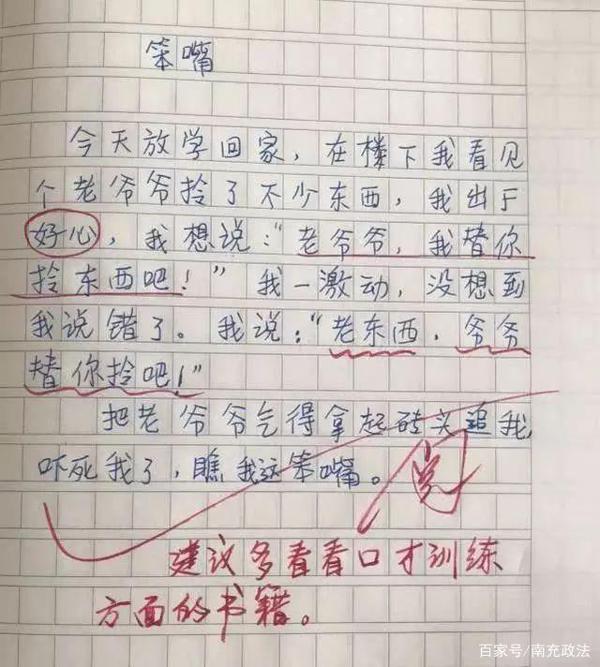 笨嘴
今天放学回家，在楼下我看见
个老爷爷拎了不少东西，我出于
好心，我想说："老爷爷，我替你
拎东西吧！"我一激动，没想到
我说错了。我说："老东西，爷爷
替你拎吧！"
把老爷爷气得拿起砖头追我，
吓死我了，瞧我这笨嘴。阅
建议多看看口才训练
方面的书籍。
百家号/南充政法